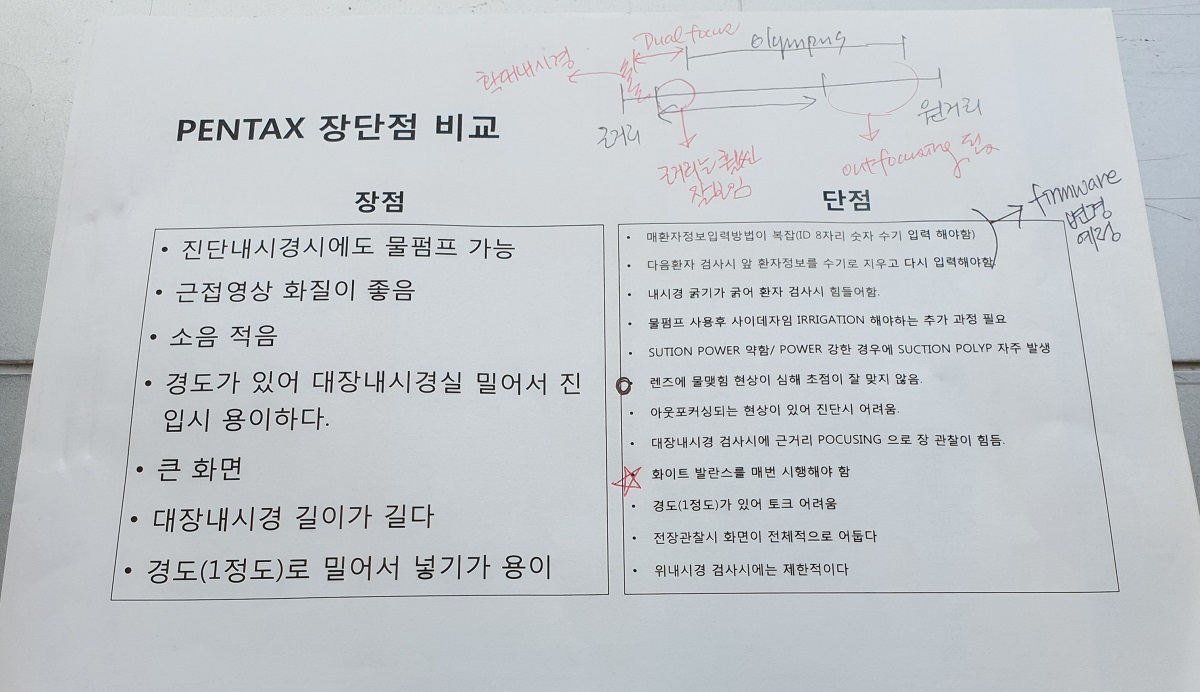 Dual focus
Olympus
확대내시경
근거리
원거리
근거리는 훨씬
잘보임
out focusing 됨
PENTAX 장단점 비교
장점
• 진단내시경시에도 물펌프 가능
• 근접영상 화질이 좋음
• 소음 적음
• 경도가 있어 대장내시경실 밀어서 진
입시 용이하다.
• 큰 화면
• 대장내시경 길이가 길다
• 경도(1정도)로 밀어서 넣기가 용이
단점
firmware
변경
예정
• 매환자정보입력방법이 복잡(ID 8자리 숫자 수기 입력 해야함)
• 다음환자 검사시 앞 환자정보를 수기로 지우고 다시 입력해야함.
• 내시경 굵기가 굵어 환자 검사시 힘들어함.
• 물펌프 사용후 사이데자임 IRRIGATION 해야하는 추가 과정 필요
• SUTION POWER 약함/ POWER 강한 경우에 SUCTION POLYP 자주 발생
• 렌즈에 물맺힘 현상이 심해 초점이 잘 맞지 않음.
• 아웃포커싱되는 현상이 있어 진단시 어려움.
• 대장내시경 검사시에 근거리 POCUSING 으로 장 관찰이 힘듬.
• 화이트 발란스를 매번 시행해야 함
• 경도(1정도)가 있어 토크 어려움
• 전장관찰시 화면이 전체적으로 어둡다
• 위내시경 검사시에는 제한적이다